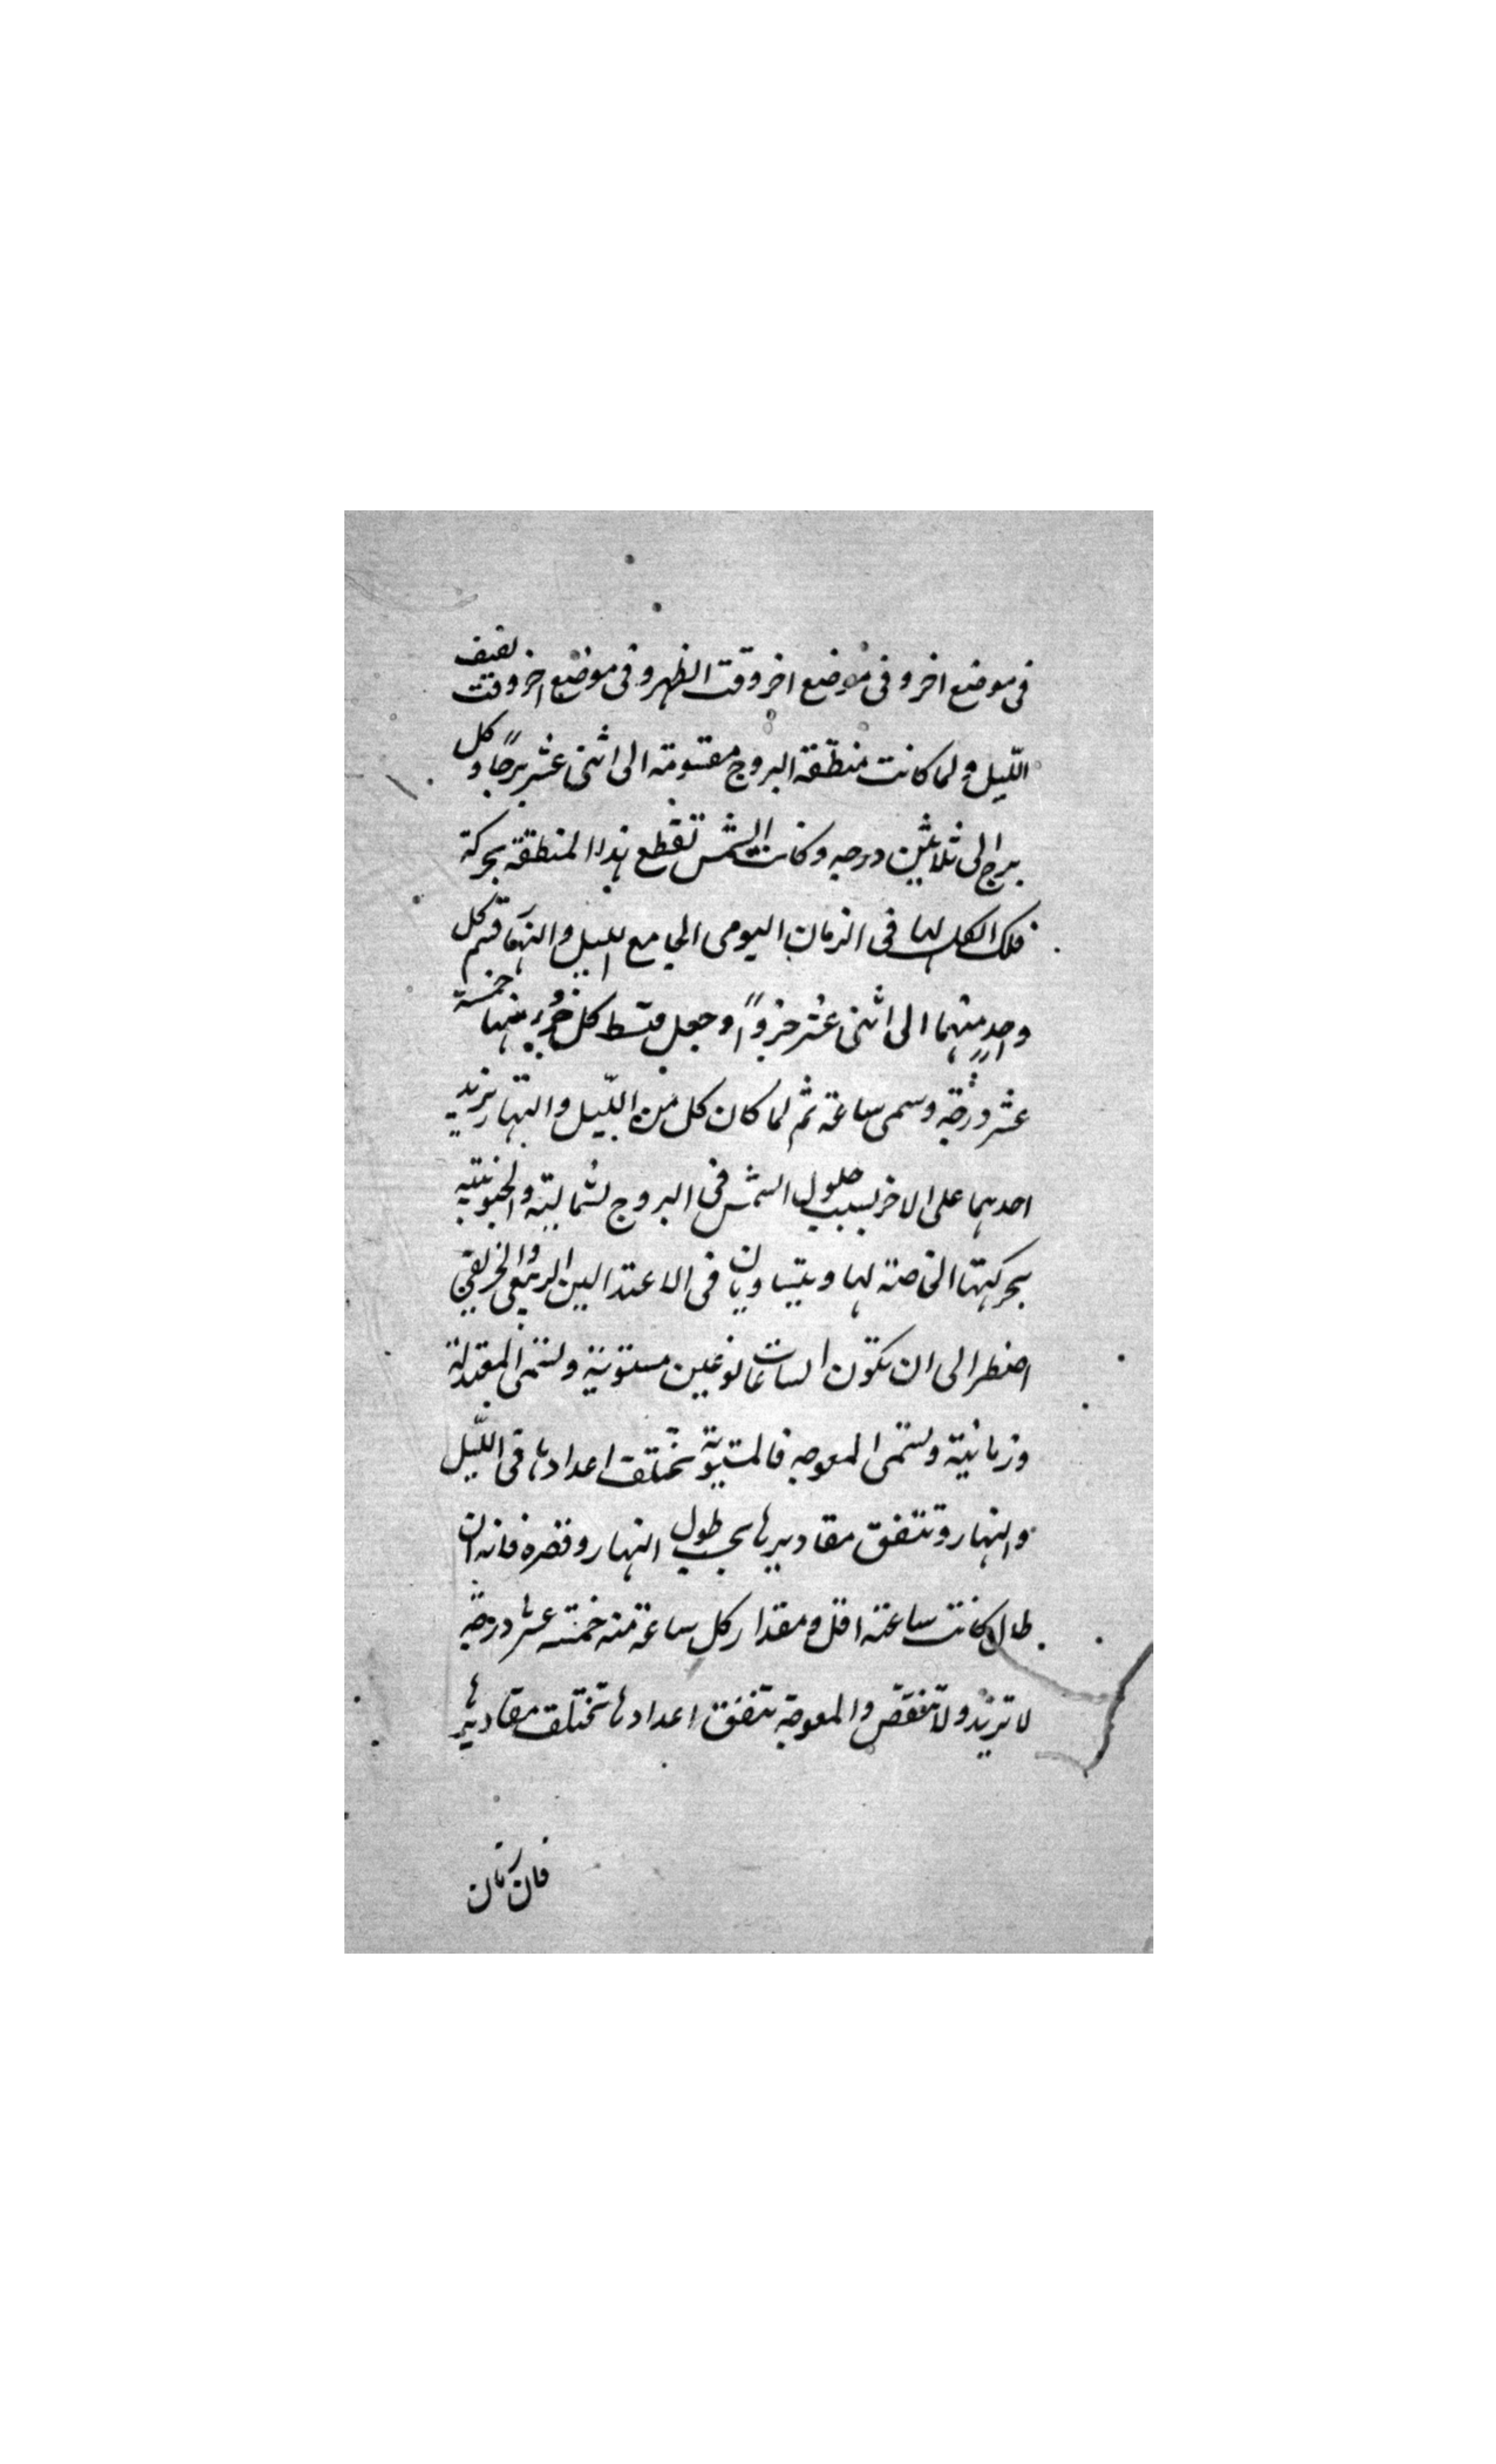 فى موضع اخر وفى موضع اخر وقت الظهر وفى موضع اخر وقت نصف
الليل ولما كانت منطقة البروج مقسومة الى اثنى عشر برجًا وكل
برج الى ثلاثين درجه وكانت الشمس تقطع هذا المنطقة بحركة
فلك الكل لها فى الزمان اليومى الجامع لليل والنهار قسم كل
واحدٍ منهما الى اثنى عشر جزوًا وجعل قسط كل جزو منها خمسة
عشر درجة وسمى ساعة ثم لما كان كل من الليل والنهار يزيد
احدهما على الاخر بسبب حلول الشمس فى البروج الشمالية والجنوبية
بحركتها الخاصة لها ويتساويان فى الاعتدالين الربيعى والخريفى
اضطر الى ان تكون الساعات نوعين مستوية وتسمى المعتدلة
وزمانية وتسمى المعوجه فالمستوية تختلف اعدادها فى الليل
والنهار وتتفق مقاديرها بحسب طول النهار وقصره فانه ان
طال كانت ساعته اقل ومقدار كل ساعة منه خمسة عشر درجة
لا تزيد ولا تنقص والمعوجة تتفق اعدادها تختلف مقاديرها
فان زمان